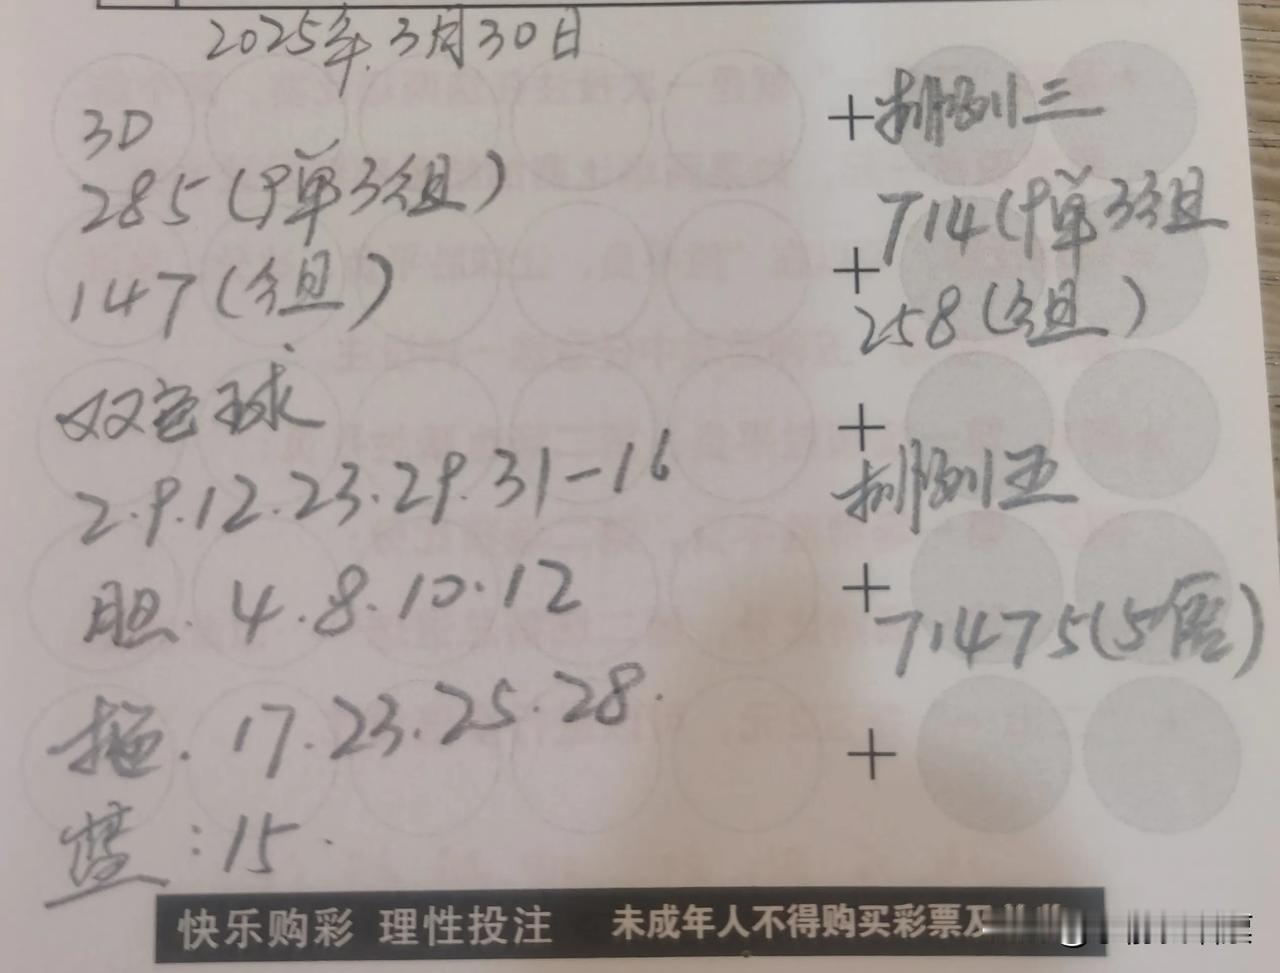 2025年.3月30日
3D
285(1单3组)
147(组)
双色球
2.9.12.23.29.31-16
胆.4.8.10.12
拖.17.23.25.28.
蓝:15.
+排列三
714(1单3组
+
258(组)
+
排列五
+
71475(5倍)
+
快乐购彩 理性投注 未成年人不得购买彩票及